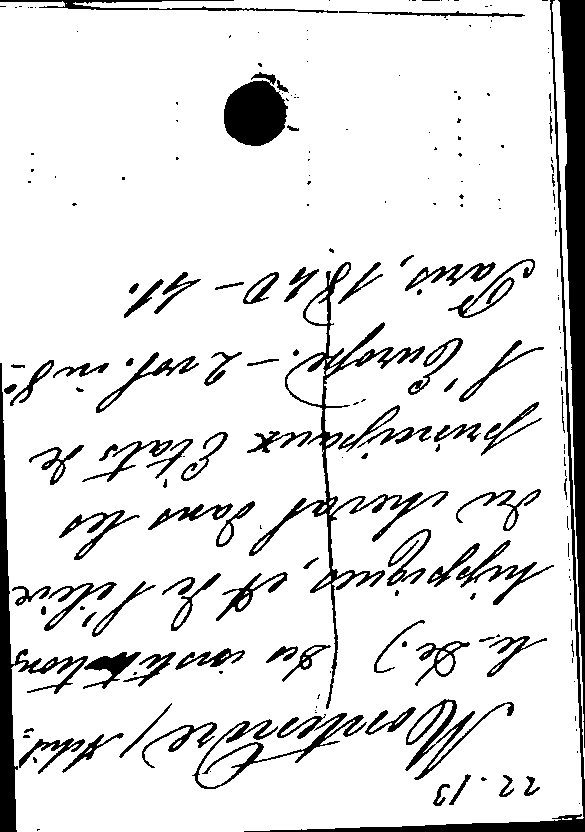 22.13
Montendre, Achil-
le-De.) Des institutions
hippiques, et de l'élève
du cheval dans les
principaux États de
l'Europe. - 2 vol. in 8°-
Paris, 1840 - 41.